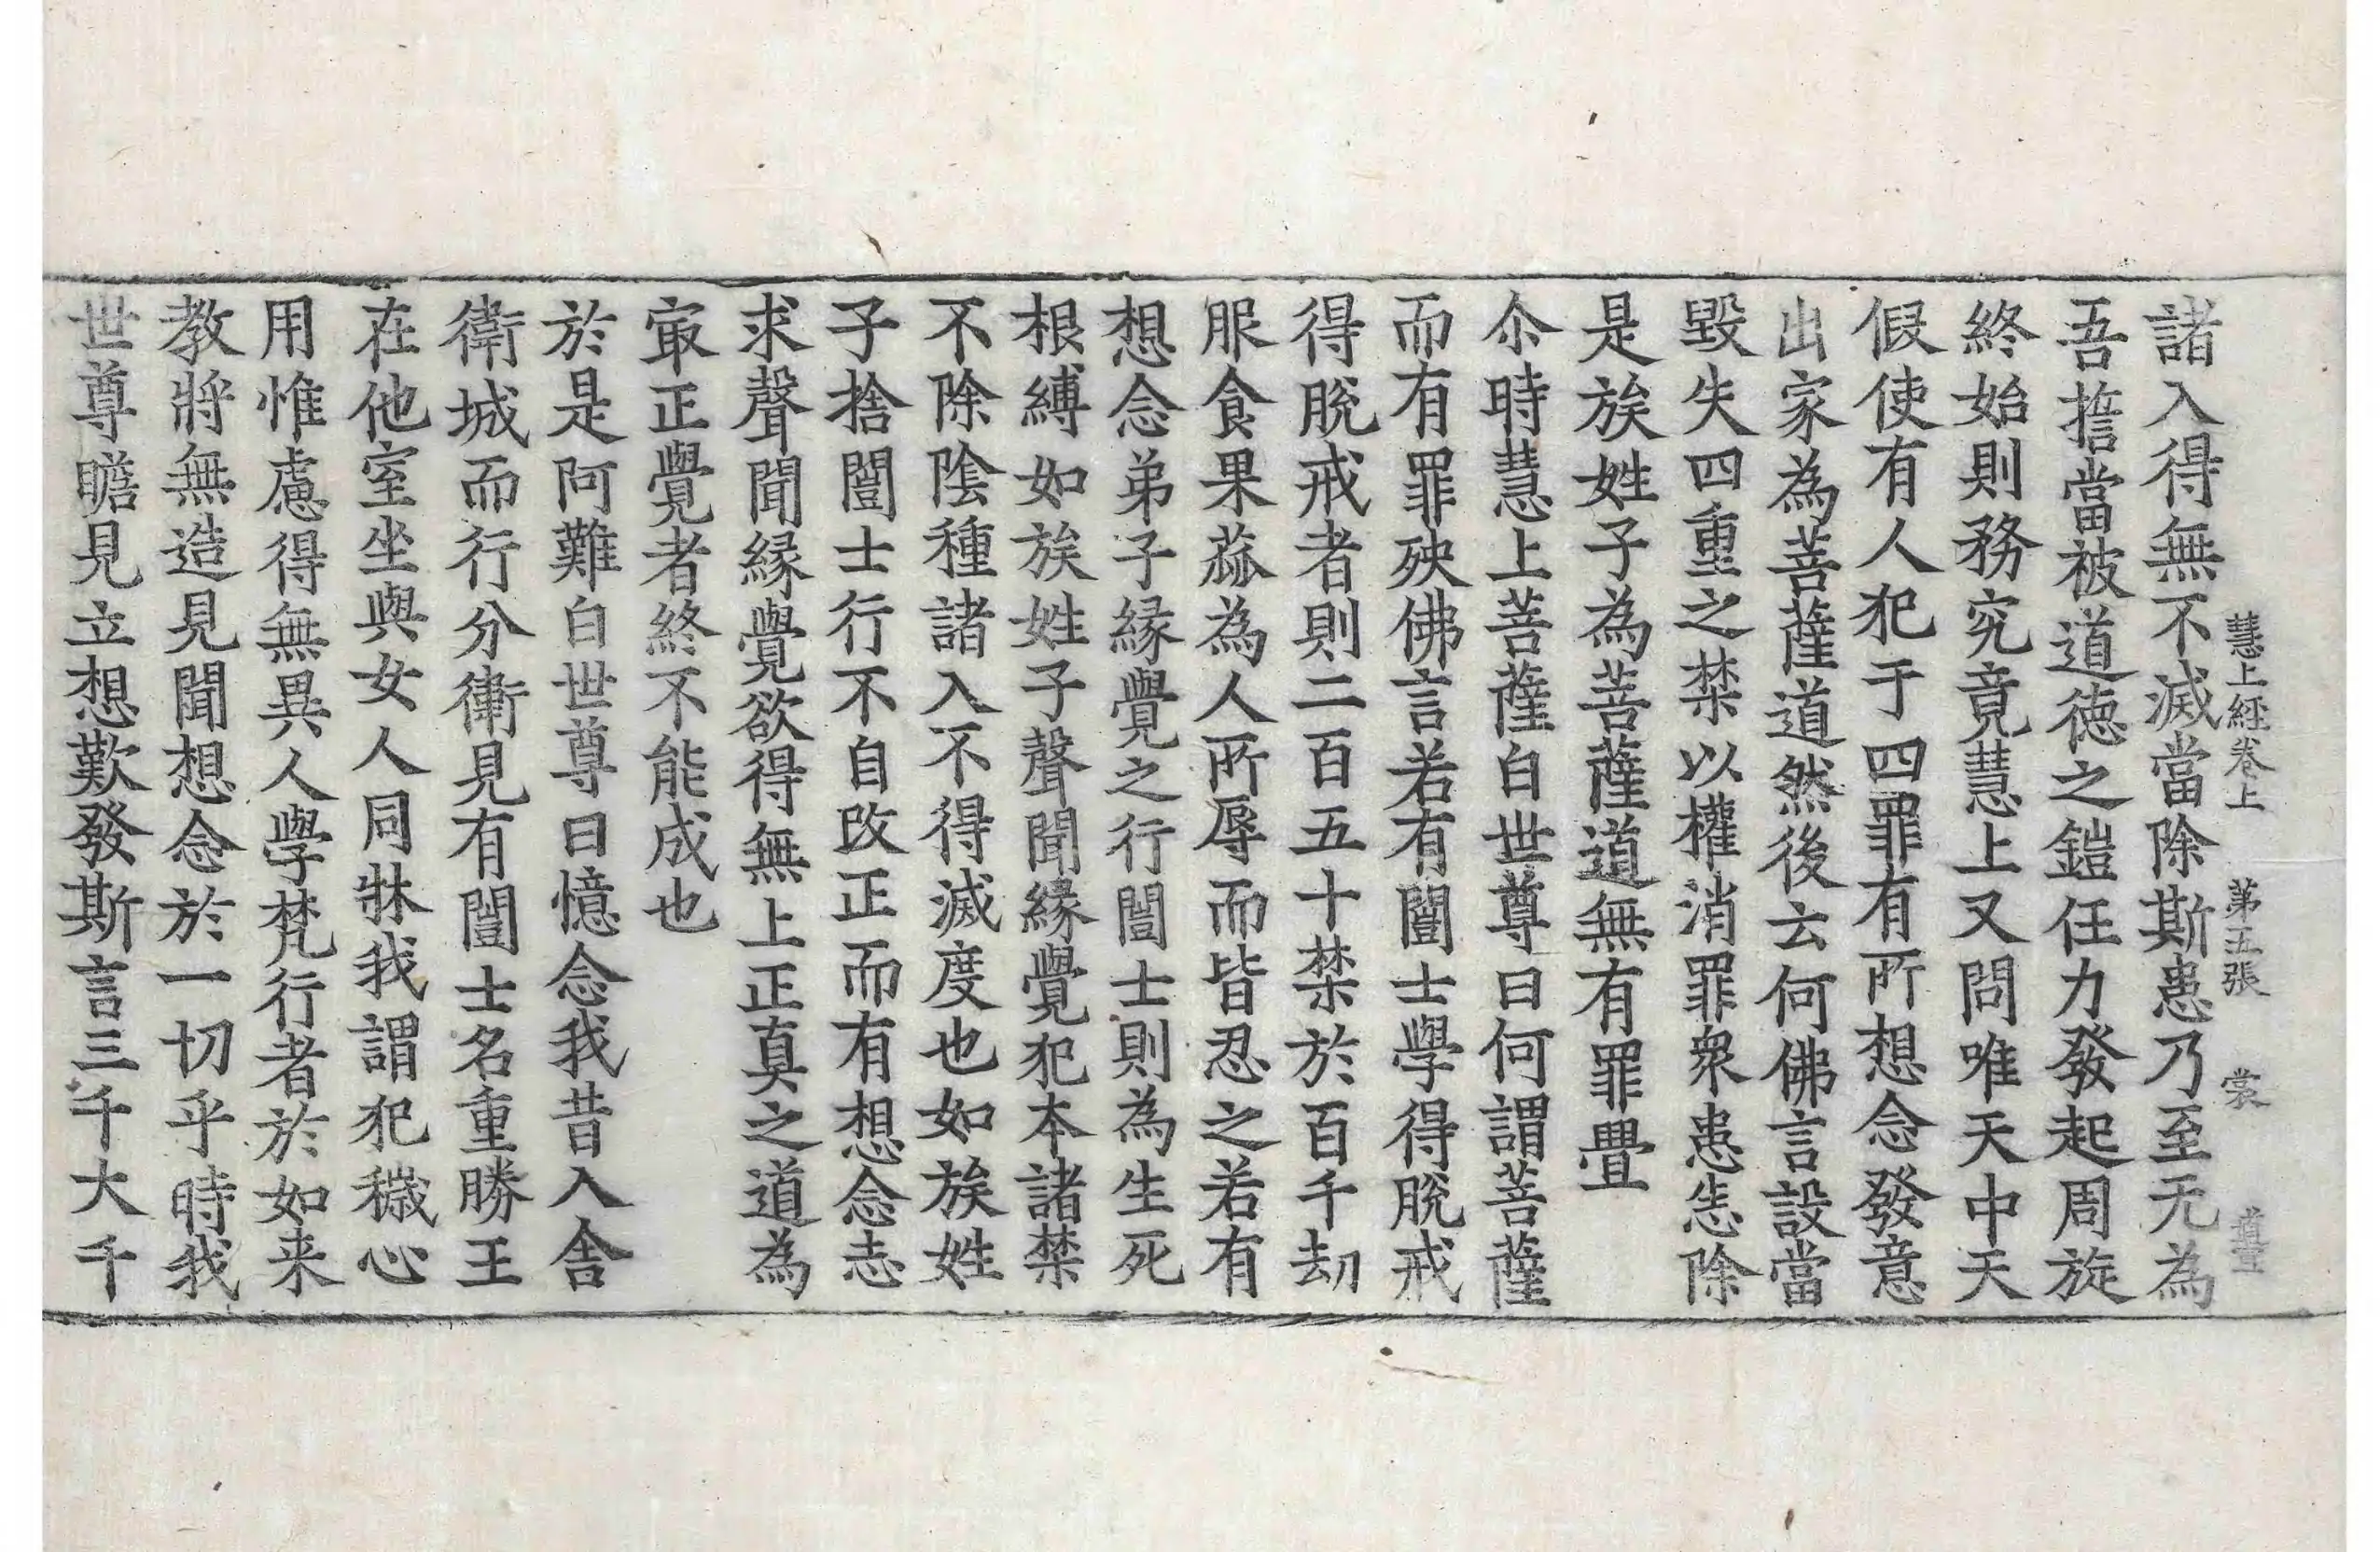 慧上經卷上 第五張 裳 道䨱
諸入得無不滅當除斯患乃至无為
吾擔當被道徳之鎧任力發起周旋
終始則務究竟慧上又問唯天中天
假使有人犯于四罪有所想念發意
出家為菩薩道然後云何佛言設當
毀失四重之禁以權消罪衆患恙除
是族姓子為菩薩道無有罪疊
尒時慧上菩薩白世尊曰何謂菩薩
而有罪殃佛言若有闓士學得脫戒
得脫戒者則二百五十禁於百千劫
服食果蓏為人所辱而皆忍之若有
想念弟子縁覺之行闓士則為生死
根縛如族姓子聲聞縁覺犯本諸禁
不除陰種諸入不得滅度也如族姓
子捨闓士行不自改正而有想念志
求聲聞縁覺欲得無上正真之道為
㝡正覺者終不能成也
於是阿難白世尊曰憶念我昔入舎
衛城而行分衛見有闓士名重勝王
在他室坐與女人同牀我謂犯穢心
用惟慮得無異人學梵行者於如来
教將無造見聞想念於一切乎時我
世尊瞻見立想歎發斯言三千大千